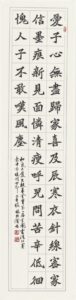 愛子心無盡歸家喜及辰寒衣針線密家
信墨痕新見面憐清瘦呼兒問苦辛低徊
愧人子不敢嘆風塵